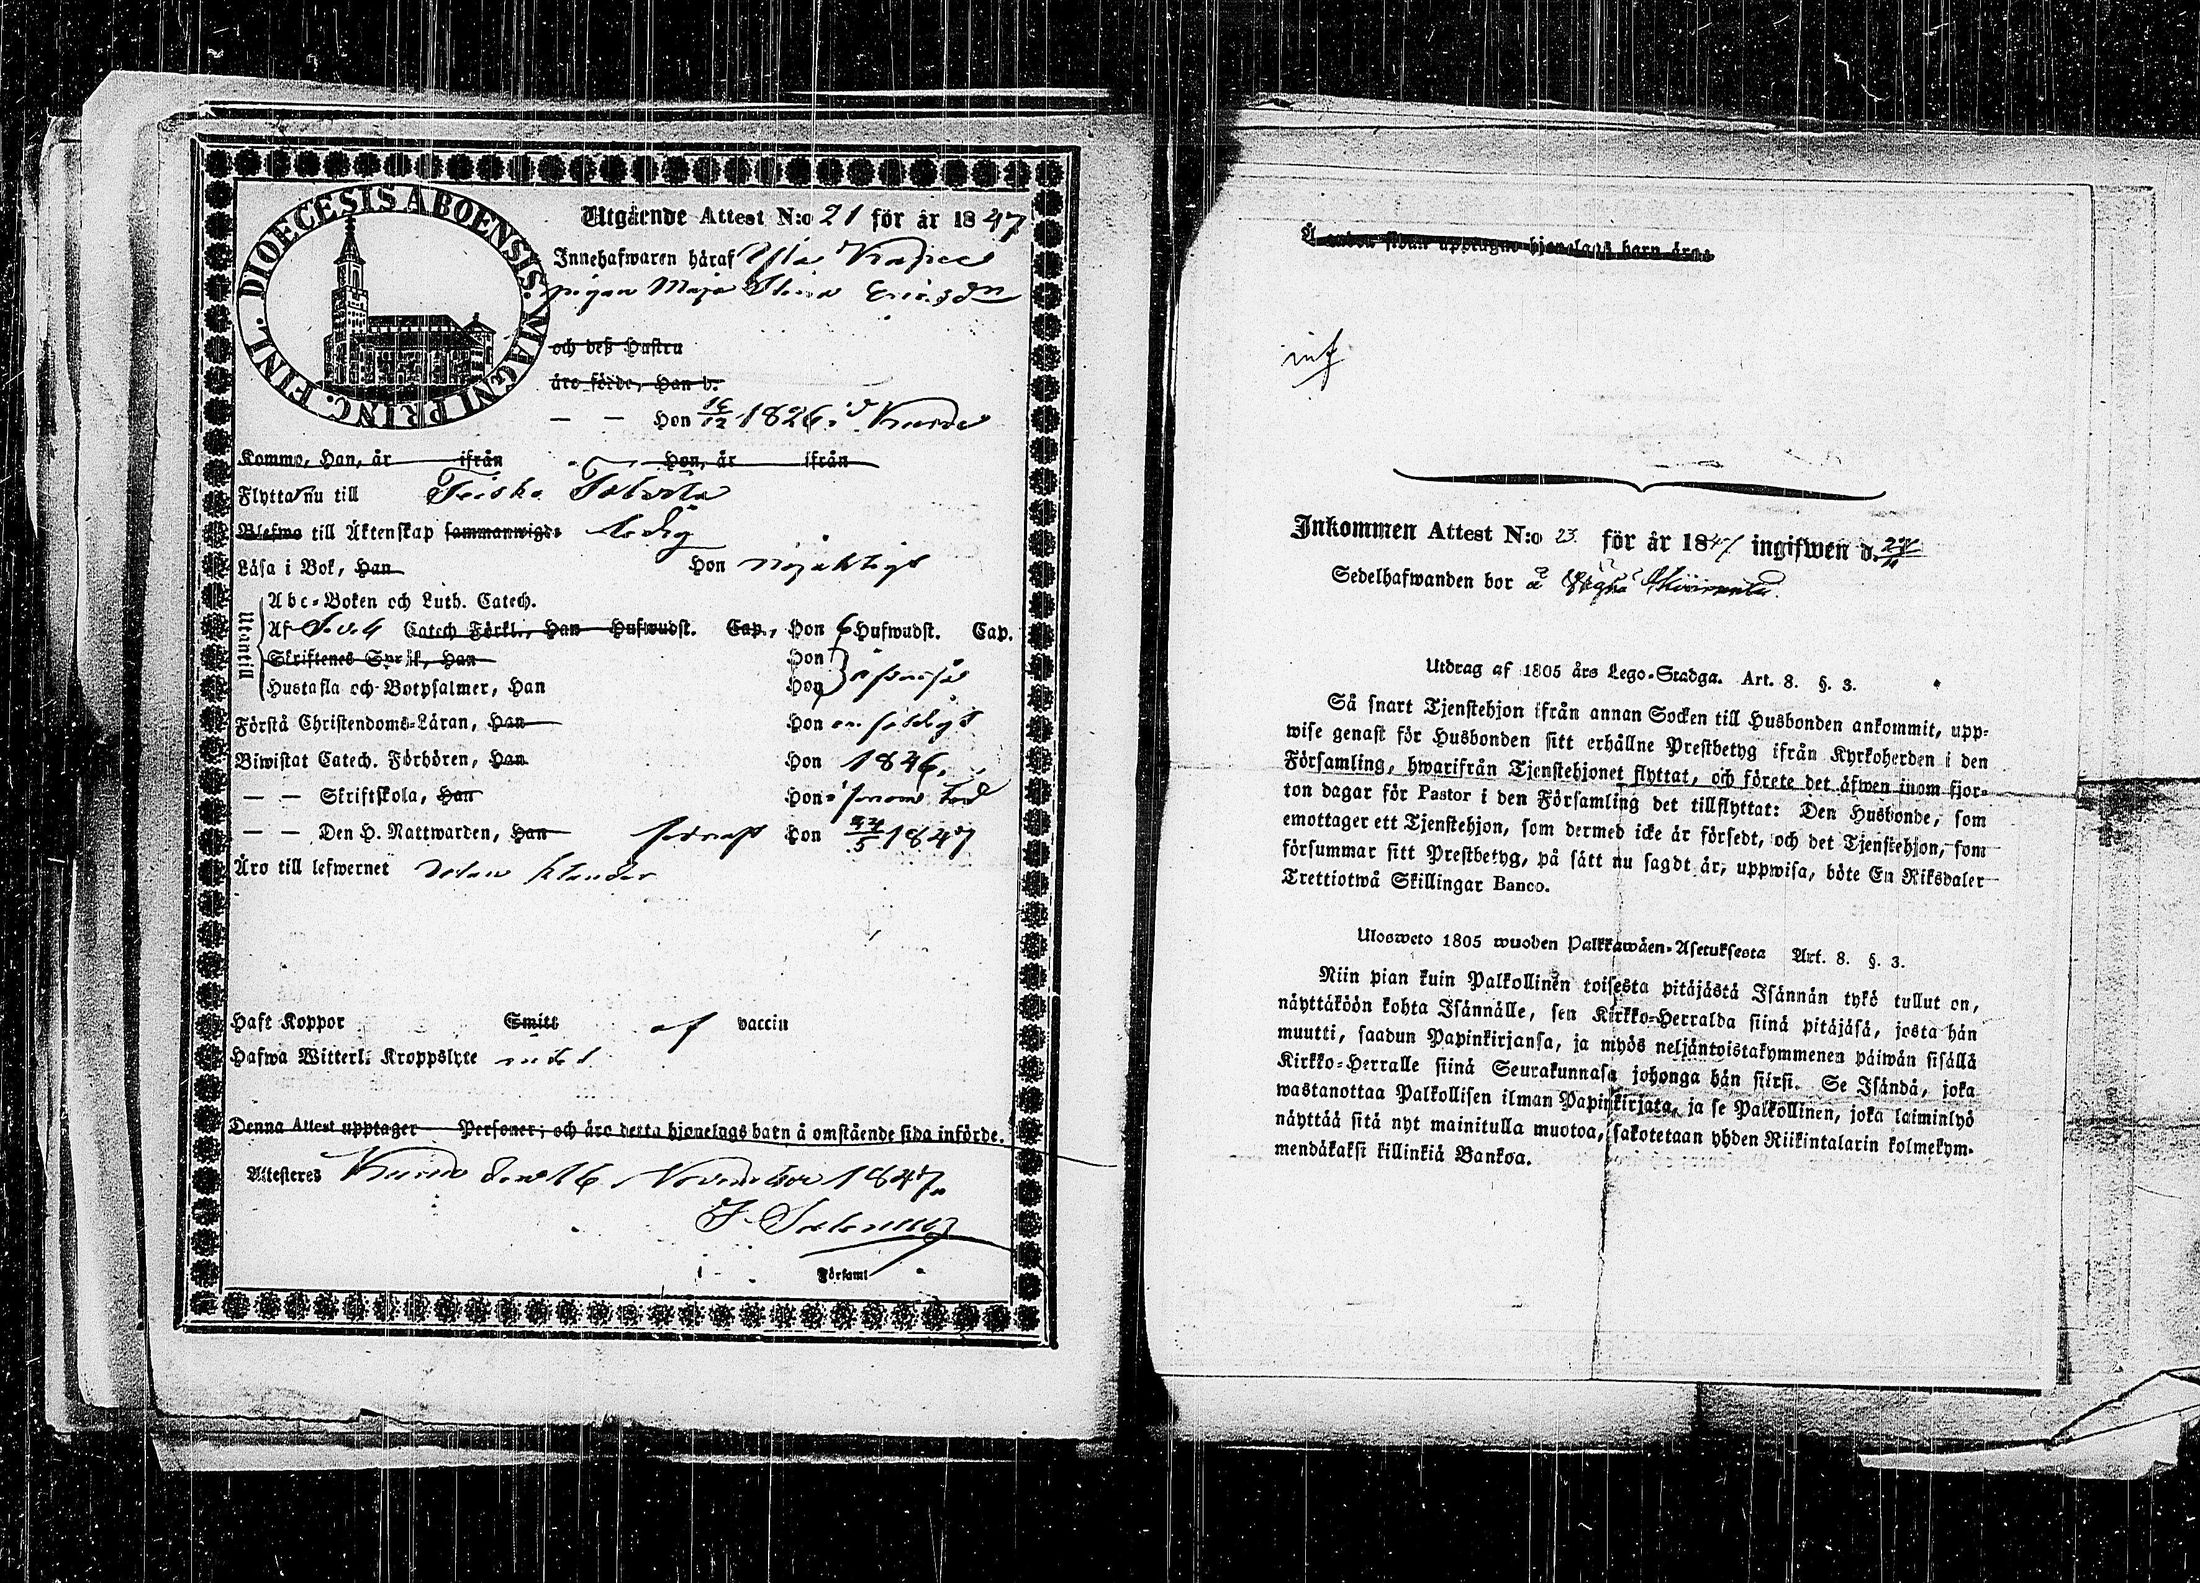 DIOECESIS ABOENSIS. MAGNI PRINC. FINL.
Utgående Attest N:o 21 för år 1847
Innehafwaren häraf
pigan Maja Stina Ericsdn
och deß Hustru
äro födde, Han d.
— — Hon 16/12 1826 i
Komme, Han, år ifrån Hon, år ifrån
Flytta nu till
Blefwo till Äktenskap sammanwigde ledig
Läsa i Bok, Han Hon nöjaktigt
Utantill
Abc-Boken och Luth. Catech.
Af Catech Förkl., Han Hufwudst. Cap., Hon 6 Hufwudst. Cap.
Skriftenes Språk, Han Hon
Hustafla och Botpsalmer, Han Hon
Förstå Christendoms-Läran, Han Hon
Biwistat Catech. Förhören, Han Hon 1846.
— — Skriftskola, Han Hon
— — Den H. Nattwarden, Han Hon 1847
Äro till lefwernet utan klander
Haft Koppor Smitt af vaccin
Hafwa Witterl. Kroppslyte
Denna Attest upptager Personer; och äro detta hjonelags barn å omstående sida införde.
Attesteres den 16 November 1847.
Församl
Inkommen Attest N:o 23. för år 1847 ingifwen d.
Sedelhafwanden bor å
Utdrag af 1805 års Lego-Stadga. Art. 8. §. 3.
Så snart Tjenstehjon ifrån annan Socken till Husbonden ankommit, upp-
wise genast för Husbonden sitt erhållne Prestbetyg ifrån Kyrkoherden i den
Församling, hwarifrån Tjenstehjonet flyttat, och förete det äfwen inom fjor-
ton dagar för Pastor i den Församling det tillflyttat: Den Husbonde, som
emottager ett Tjenstehjon, som dermed icke är försedt, och det Tjenstehjon, som
försummar sitt Prestbetyg, på sätt nu sagdt är, uppwisa, böte En Riksdaler
Trettiotwå Skillingar Banco.
Ulosweto 1805 wuoden Palkkawäen-Asetuksesta Art. 8. §. 3.
Niin pian kuin Palkollinen toisesta pitäjästä Isännän tykö tullut on,
näyttäköön kohta Isännälle, sen Kirkko-Herralda siinä pitäjäsä, josta hän
muutti, saadun Papinkirjansa, ja myös neljäntoistakymmenen päiwän sisällä
Kirkko-Herralle siinä Seurakunnasa johonga hän siirsi. Se Isändä, joka
wastanottaa Palkollisen ilman Papinkirjata, ja se Palkollinen, joka laiminlyö
näyttää sitä nyt mainitulla muotoa, sakotetaan yhden Riikintalarin kolmekym-
mendäkaksi killinkiä Bankoa.